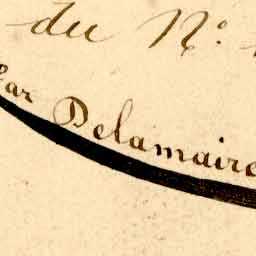 du N°
Par Delamaire